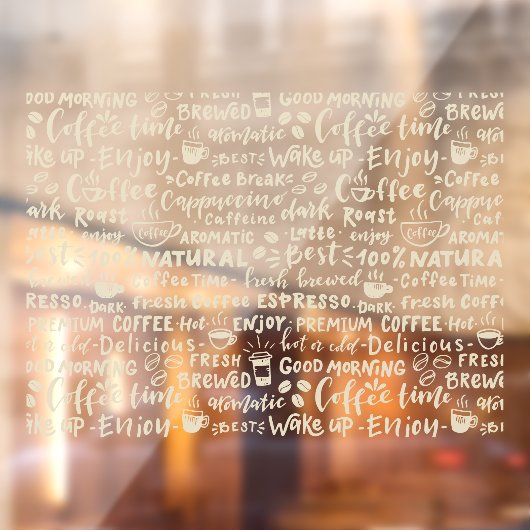 GOOD MORNING FRESH GOOD MORNING FRESH
BREWED BREWED
Coffee time aromatic Coffee time aroma
Wake up - Enjoy - - BEST - Wake up - Enjoy - - BES
Coffee Break Coffee
Coffee Cappuccino Coffee Cappuc
dark Roast Caffeine dark Roast Caf
Latte enjoy Coffee AROMATIC Latte enjoy Coffee AROMAT
Best 100% NATURAL Best 100% NATURA
brewed Coffee Time - fresh brewed - Coffee Time - fre
ESPRESSO DARK fresh Coffee ESPRESSO DARK fresh Coffee
PREMIUM COFFEE Hot ENJOY PREMIUM COFFEE Hot
hot or cold - Delicious - hot or cold - Delicious -
GOOD MORNING FRESH GOOD MORNING FRESH
BREWED BREWED
Coffee time aromatic Coffee time aroma
Wake up - Enjoy - - BEST - Wake up - Enjoy - - BES